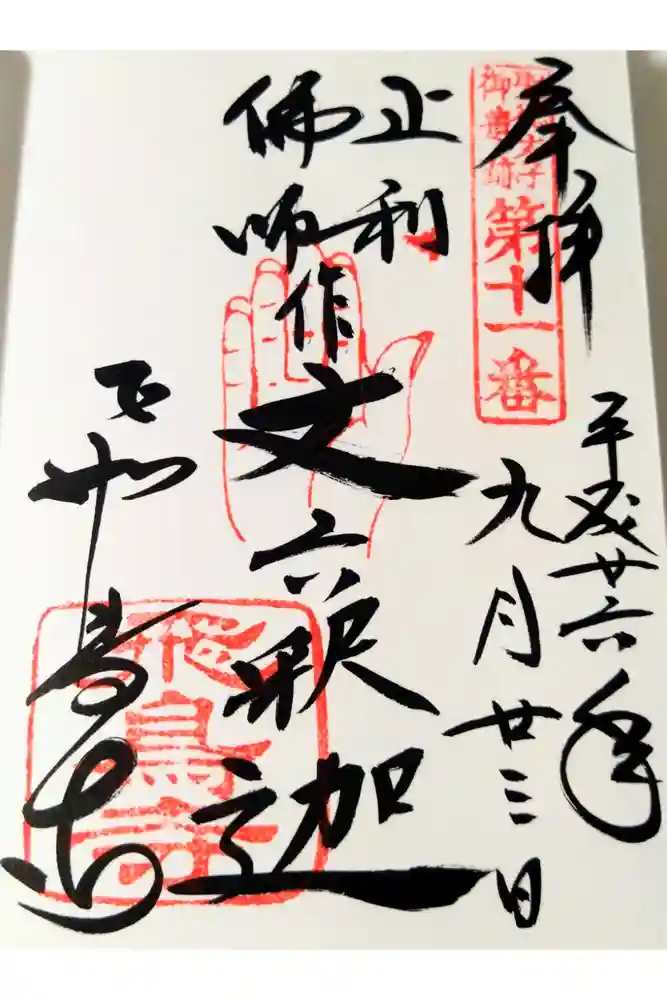 奉拝
聖徳太子
御遺跡
第十一番
平成廿六年
九月廿三日
止利
佛師
作
丈六釈迦
飛鳥寺